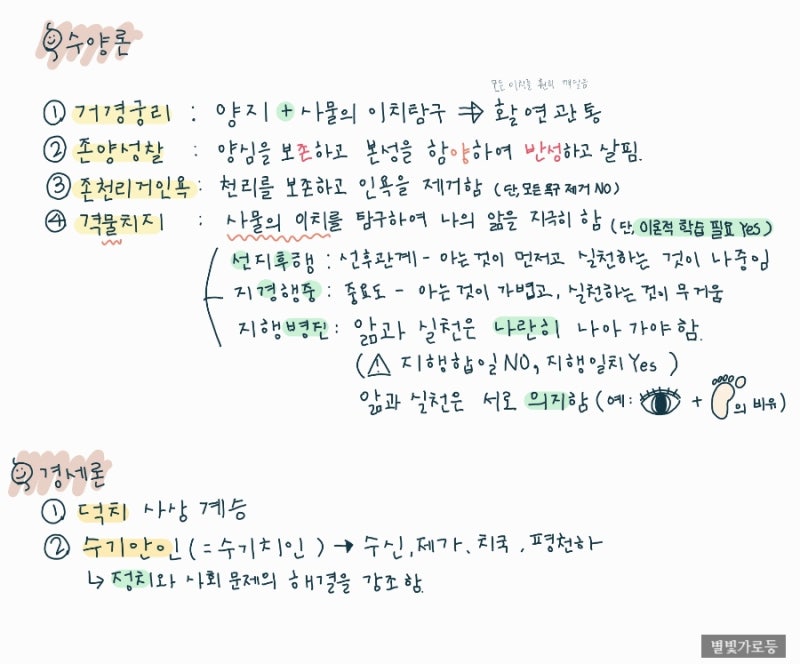 수양론
모든 이치를 훤히 깨달음
① 거경궁리 : 양지 + 사물의 이치탐구 ⇒ 활연관통
② 존양성찰 : 양심을 보존하고 본성을 함양하여 반성하고 살핌.
③ 존천리거인욕 : 천리를 보존하고 인욕을 제거함 (단, 모든 욕구 제거 NO)
④ 격물치지 : 사물의 이치를 탐구하여 나의 앎을 지극히 함 (단, 이론적 학습 필요 Yes)
선지후행 : 선후관계 - 아는 것이 먼저고 실천하는 것이 나중임
지경행중 : 중요도 - 아는 것이 가볍고, 실천하는 것이 무거움
지행병진 : 앎과 실천은 나란히 나아 가야 함.
(⚠ 지행합일 NO, 지행일치 Yes )
앎과 실천은 서로 의지함 (예: + 의 비유)
경세론
① 덕치 사상 계승
② 수기안인 ( = 수기치인 ) → 수신, 제가, 치국, 평천하
↳ 정치와 사회 문제의 해결을 강조함.
별빛가로등